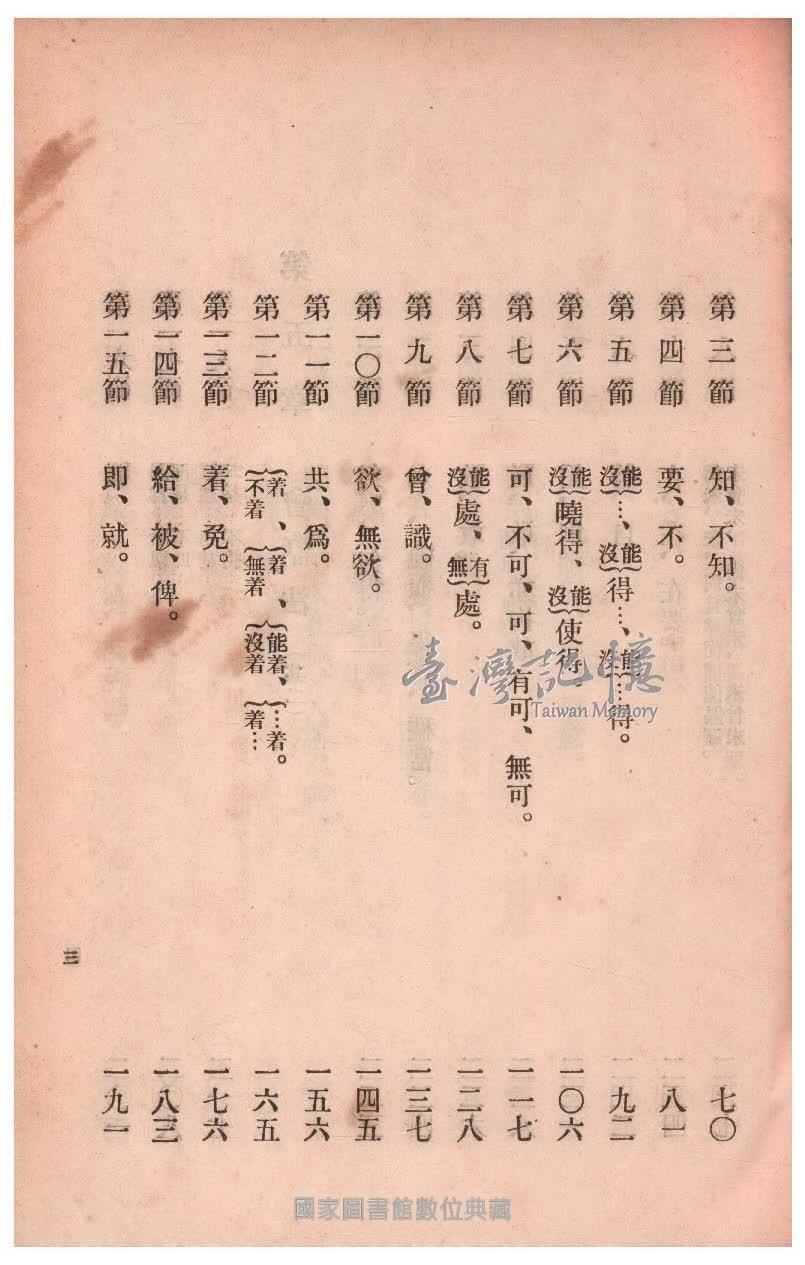 第三節 知、不知。 七〇
第四節 要、不。 八一
第五節 {能/沒}…、{能/沒}得…、{能/沒}…得。 九二
第六節 {能/沒}曉得、{能/沒}使得。 一〇六
第七節 可、不可、可、有可、無可。 一一七
第八節 {能/沒}處、{有/無}處。 一二八
第九節 曾、識。 一三七
第一〇節 欲、無欲。 一四五
第一一節 共、爲。 一五六
第一二節 {着/不着}、{着/無着}、{能着/沒着}、{…着/着…}。 一六五
第一三節 着、免。 一七六
第一四節 給、被、俾。 一八三
第一五節 即、就。 一九一
三
臺灣記憶
Taiwan Memory
國家圖書館數位典藏